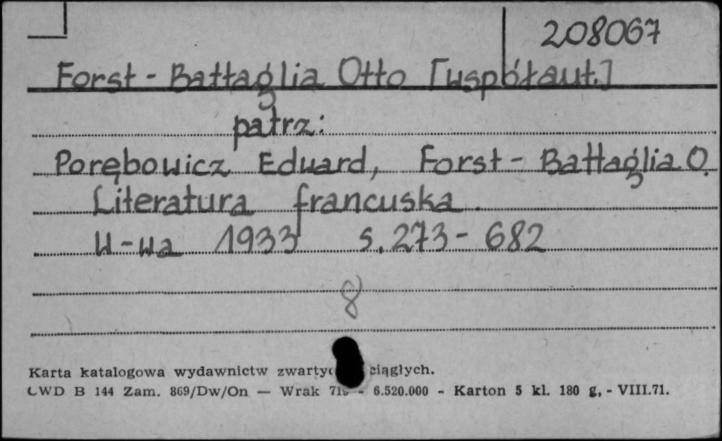 208067
Forst-Battaglia Otto [współaut.]
patrz:
Porębowicz Edward, Forst-Battaglia O.
Literatura francuska.
W-wa 1933 s. 273-682
8
Karta katalogowa wydawnictw ciągłych.
CWD B 144 Zam. 869/Dw/On — Wrak - 6.520.000 - Karton 5 kl. 180 g, - VIII.71.